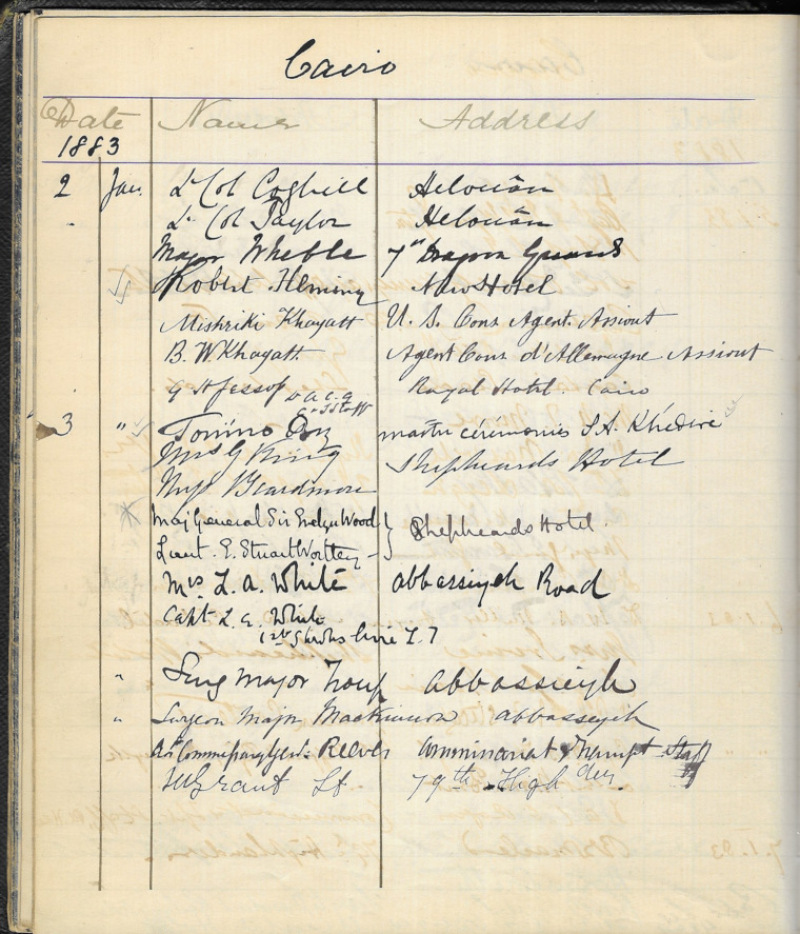 Cairo
Date Names Address
1883
2 Jan. Lt Col Coghill Helouân
Lt Col Taylor Helouân
Major Wheble 7th Dragoon Guards
Robert Fleming New Hotel
Mishriki Khayatt U. S. Cons Agent. Assiout
B. W. Khayatt Agent Cons d'Allemagne Assiout
Jessop Royal Hotel. Cairo
3 " Tonino Bey cérémonies S.A. Khédive
Mrs G King Shepheards Hotel
Miss Beardmore
Maj General Sir Evelyn Wood Shepheards Hotel
Lieut. E. Stuart Wortley
Mrs L. A. White Abbassiyeh Road
Capt L. A. White
" Surg Major Abbassieyh
" Surgeon Major Mackinnon Abbasseyeh
Reeves Commissariat & Transpt Staff
Grant Lt 79th High der.